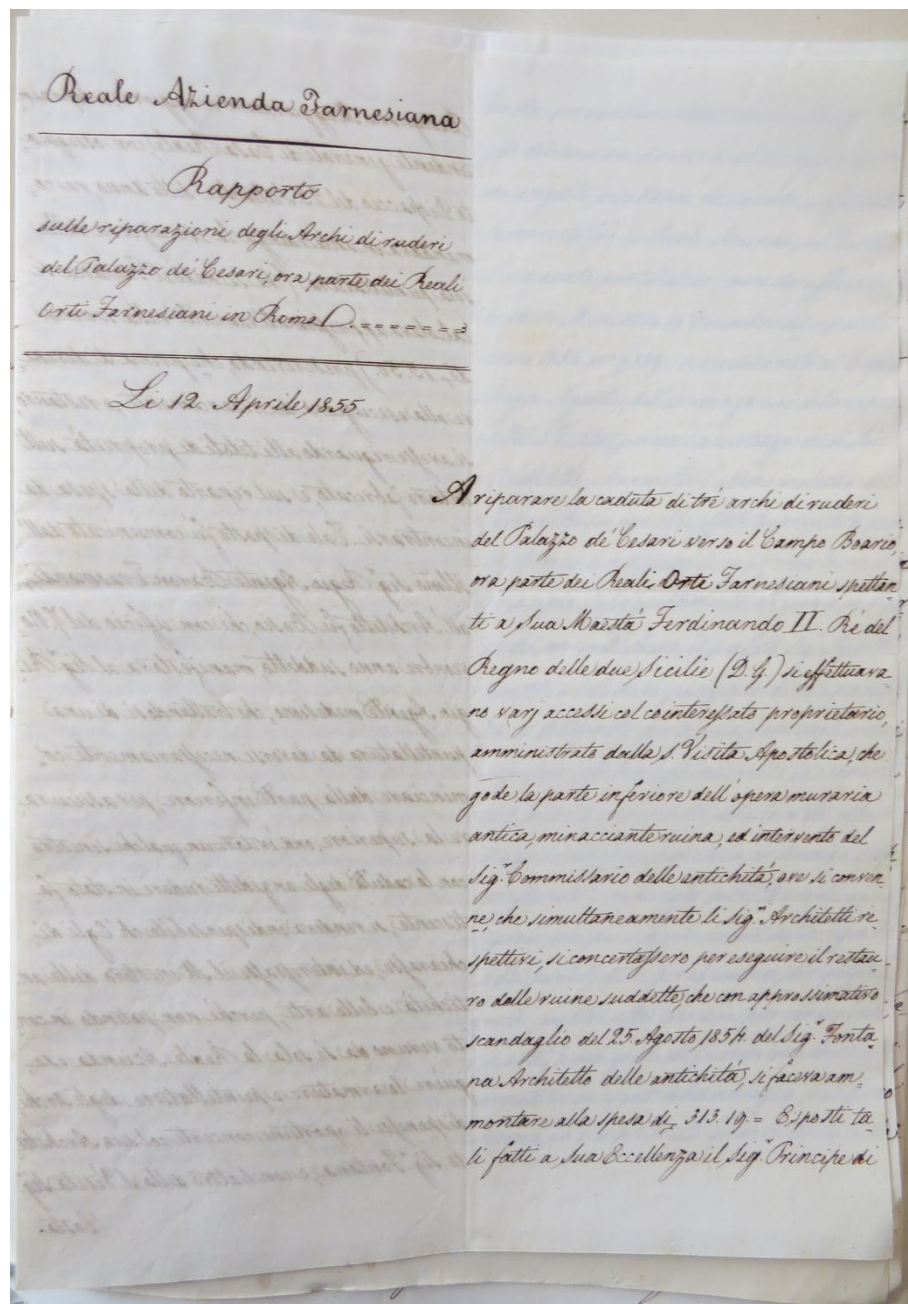 Reale Azienda Farnesiana
Rapporto
sulle riparazioni degli Archi di ruderi
del Palazzo de' Cesari, ora parte dei Reali
Orti Farnesiani in Roma
Li 12. Aprile 1855.
A riparare la caduta di trè archi di ruderi
del Palazzo de' Cesari verso il Campo Boario,
ora parte dei Reali Orti Farnesiani spettan-
ti a Sua Maestà Ferdinando II. Rè del
Regno delle due Sicilie (D. G.) si effettuava-
no varj accessi col cointeressato proprietario,
amministrato dalla S. Visita Apostolica, che
gode la parte inferiore dell'opera muraria
antica, minacciante ruina, ed intervento del
Sig.r Commissario delle antichità, ove si conven-
ne, che simultaneamente li Sig.ri Architetti re-
spettivi, si concertassero per eseguire il restau-
ro delle ruine suddette, che con approssimativo
scandaglio del 25. Agosto 1854. del Sig.r Fonta-
na Architetto delle antichità, si faceva am-
montare alla spesa di 313. 19. = Esposti ta-
li fatti a Sua Eccellenza il Sig.r Principe di